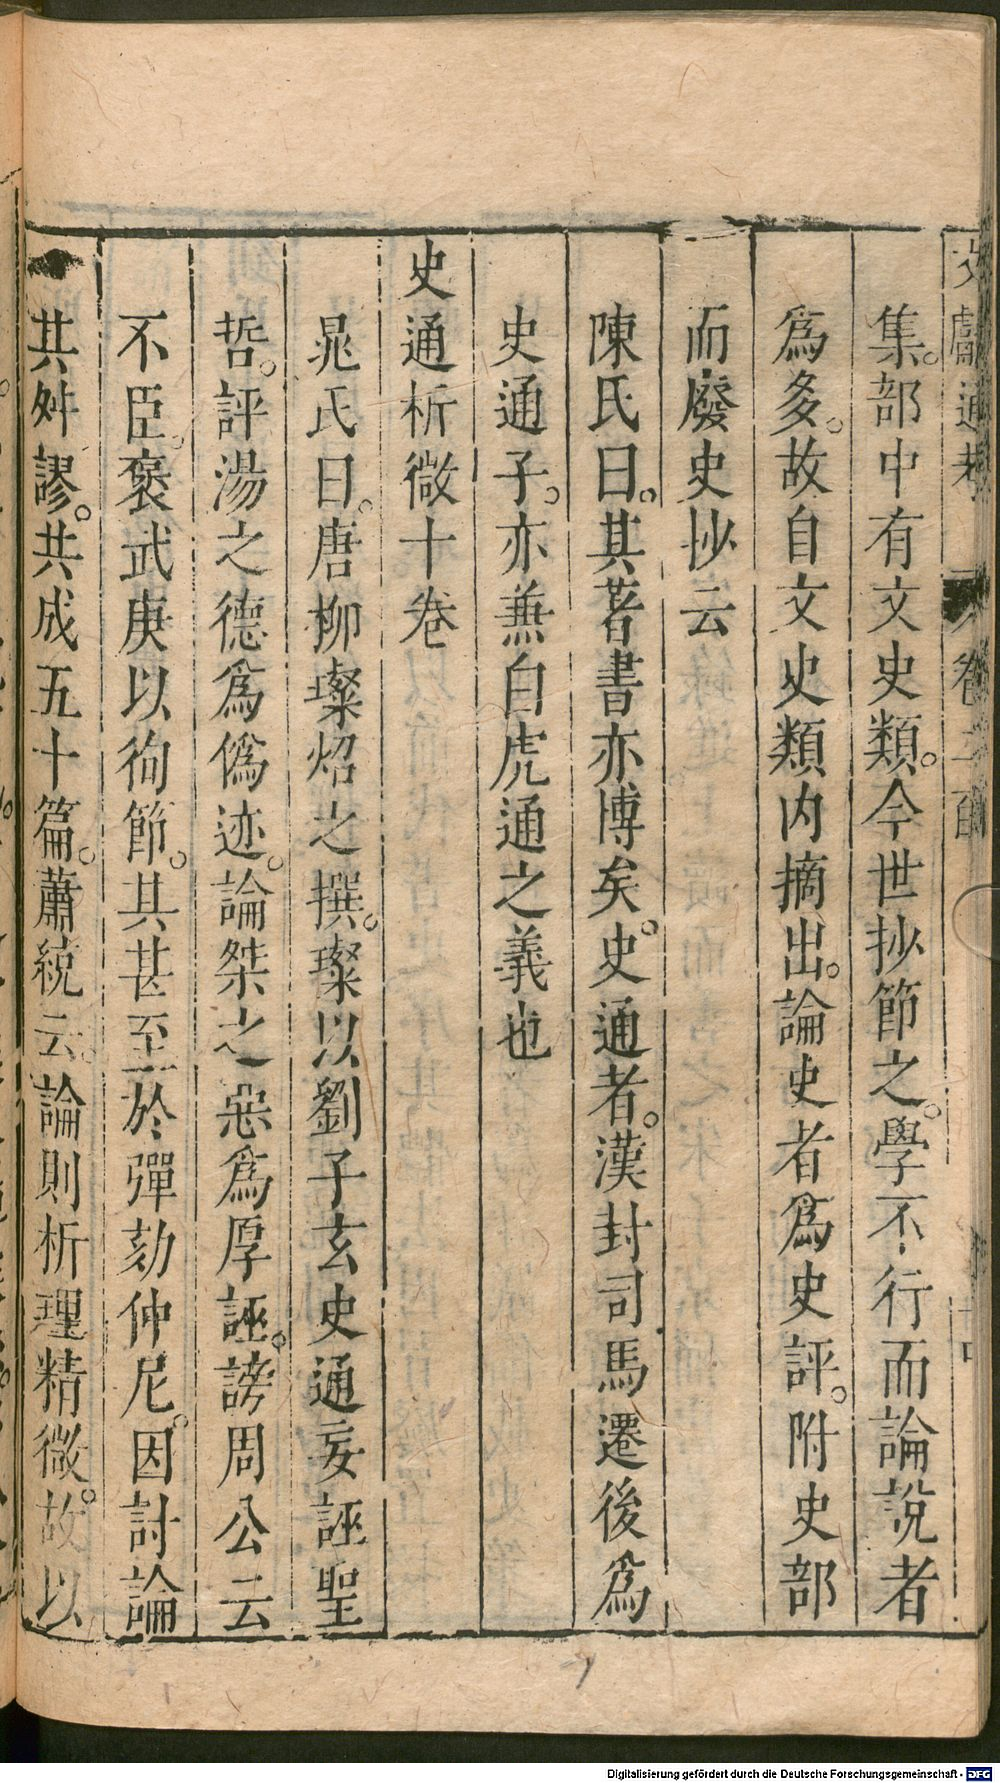 文獻通考 卷二百 十四
集。部中有文史類。今世抄節之。學不行而論説者
爲多。故自文史類内摘出。論史者爲史評。附史部
而廢史抄云
陳氏曰。其著書亦博矣。史通者。漢封司馬遷後爲
史通子。亦兼白虎通之義也
史通析微十卷
晁氏曰。唐柳璨炤之撰。璨以劉子玄史通妄誣聖
哲。評湯之德爲僞迹。論桀之惡爲厚誣。謗周公云
不臣。褒武庚以徇節。其甚至於彈劾仲尼。因討論
其舛謬。共成五十篇。蕭統云。論則析理精微。故以
Digitalisierung gefördert durch die Deutsche Forschungsgemeinschaft - DFG